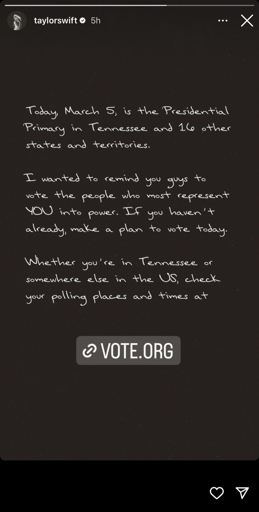 taylorswift 5h
Today, March 5, is the Presidential
Primary in Tennessee and 16 other
states and territories.
I wanted to remind you guys to
vote the people who most represent
YOU into power. If you haven't
already, make a plan to vote today.
Whether you're in Tennessee or
somewhere else in the US, check
your polling places and times at
VOTE.ORG